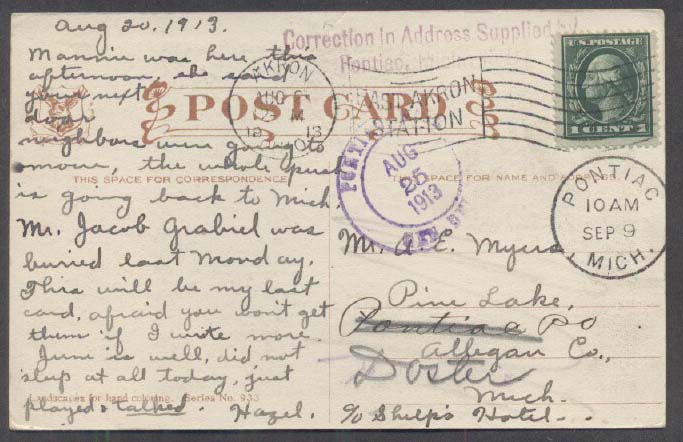 Aug 20, 1913.
Mannie was here this
afternoon, she said
your next
door
neighbors were going to
move, the whole push
is going back to Mich.
Mr. Jacob Grabiel was
buried last Monday.
This will be my last
card, afraid you won't get
them if I write more.
June is well, did not
sleep at all today, just
played & talked. Hazel.
POST CARD
THIS SPACE FOR CORRESPONDENCE
THIS SPACE FOR NAME AND ADDRESS
Landscapes for hand coloring. Series No. 933
Correction in Address Supplied by
Pontiac,
AKRON
AUG
1913
EAST AKRON
STATION
U.S. POSTAGE
1 CENT 1
AUG
25
1913
PONTIAC
10 AM
SEP 9
MICH.
Mr. A. E. Myers
Pine Lake,
Pontiac PO
Allegan Co.,
Doster
Mich.
c/o Shelp's Hotel.